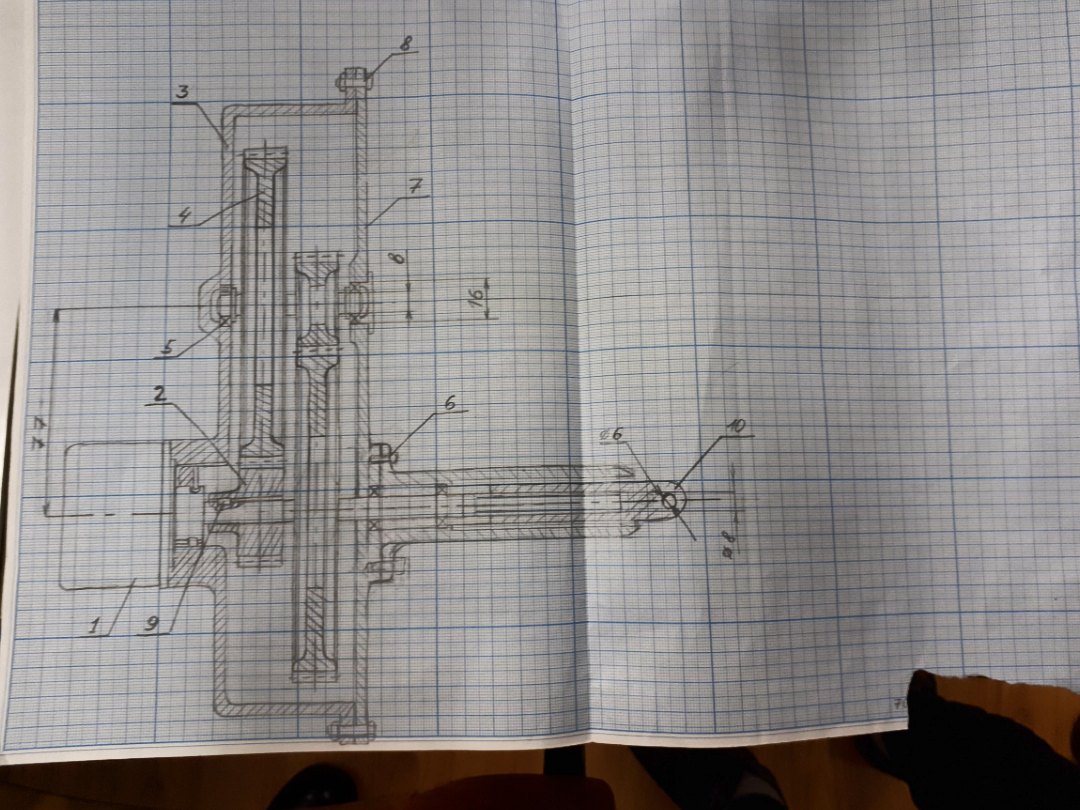 8
3
7
4
8
16
5
2
77
6
ø6
10
ø8
1
9